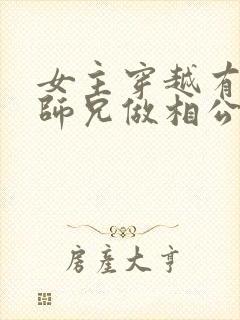 女主穿越有
師兄做相公
房產大亨